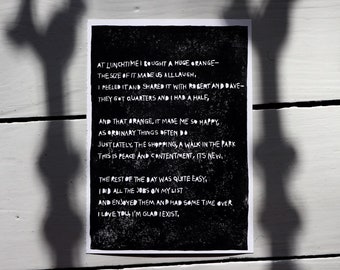 AT LUNCHTIME I BOUGHT A HUGE ORANGE—
THE SIZE OF IT MADE US ALL LAUGH,
I PEELED IT AND SHARED IT WITH ROBERT AND DAVE—
THEY GOT QUARTERS AND I HAD A HALF,
AND THAT ORANGE, IT MADE ME SO HAPPY,
AS ORDINARY THINGS OFTEN DO
JUST LATELY. THE SHOPPING, A WALK IN THE PARK
THIS IS PEACE AND CONTENTMENT, IT'S NEW.
THE REST OF THE DAY WAS QUITE EASY,
I DID ALL THE JOBS ON MY LIST
AND ENJOYED THEM AND HAD SOME TIME OVER
I LOVE YOU, I'M GLAD I EXIST.